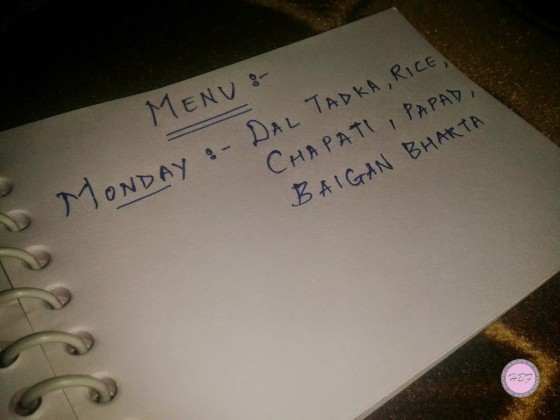 MENU :-
MONDAY :- DAL TADKA, RICE,
CHAPATI, PAPAD,
BAIGAN BHARTA
HBF